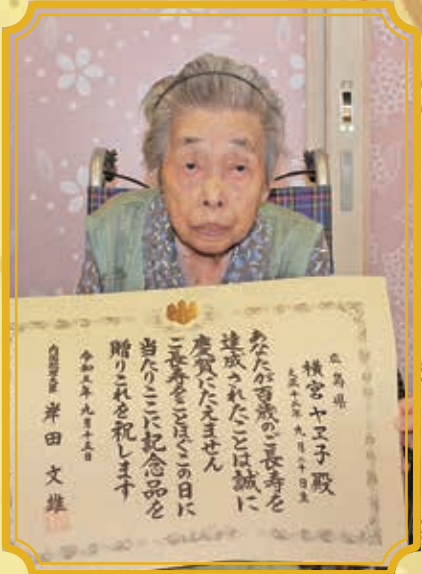 広島県
横宮ヤヱ子殿
大正十二年九月二十日生
あなたが百歳のご長寿を
達成されたことは誠に
慶賀にたえません
ご長寿をことほぐこの日に
当たりここに記念品を
贈りこれを祝します
令和五年九月十五日
内閣総理大臣 岸田文雄